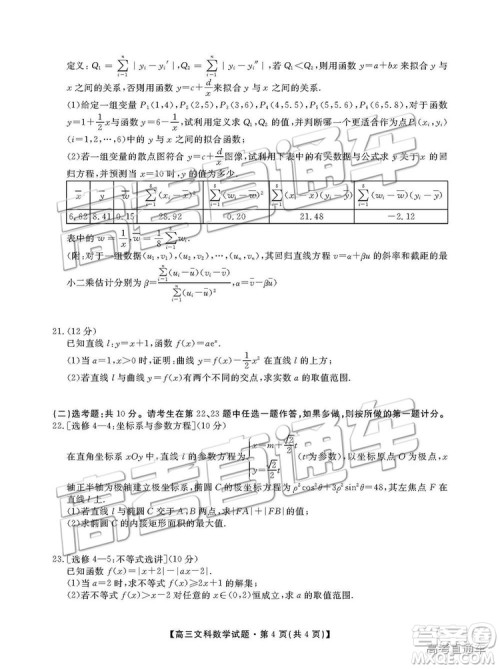 定义：Q₁ = ∑ᵢ₌₁ⁿ |yᵢ－yᵢ′|，Q₂ = ∑ᵢ₌₁ⁿ |yᵢ－yᵢ″|，若 Q₁＜Q₂，则用函数 y=a+bx 来拟合 y 与
x 之间的关系，否则用函数 y=c+d/x 来拟合 y 与 x 之间的关系.
(1)给定一组变量 P₁(1,4)，P₂(2,5)，P₃(3,6)，P₄(4,5.5)，P₅(5,5.6)，P₆(6,5.8)，对于函数
y=1+½x 与函数 y=6－
，试利用定义求 Q₁，Q₂ 的值，并判断哪一个更适合作为点 Pᵢ(xᵢ,yᵢ)
(i=1,2,…,6)中的 y 与 x 之间的拟合函数；
(2)若一组变量的散点图符合 y=c+d/x 图像，试利用下表中的有关数据与公式求 y 关于 x 的回
归方程，并预测当 x=10 时，y 的值为多少.
x̄ ȳ w̄ ∑(xᵢ－x̄)² ∑(wᵢ－w̄)² ∑(xᵢ－x̄)(yᵢ－ȳ) ∑(wᵢ－w̄)(yᵢ－ȳ)
6.62 8.41 0.15 28.92 0.20 21.48 －2.12
表中的 w=1/x，w̄=⅛∑wᵢ
(附：对于一组数据(u₁,v₁)，(u₂,v₂)，…，(uₙ,vₙ)，其回归直线方程 v=α+βu 的斜率和截距的最
小二乘估计分别为 β=∑ᵢ₌₁ⁿ(uᵢ－ū)(vᵢ－v̄)/∑ᵢ₌₁ⁿ(uᵢ－ū)²，α=v̄－βū)
21.(12 分)
已知直线 l：y=x+1，函数 f(x)=aeˣ.
(1)当 a=1，x＞0 时，证明：曲线 y=f(x)－½x² 在直线 l 的上方；
(2)若直线 l 与曲线 y=f(x)有两个不同的交点，求实数 a 的取值范围.
(二)选考题：共 10 分. 请考生在第 22、23 题中任选一题作答，如果多做，则按所做的第一题计分.
22.[选修 4—4：坐标系与参数方程](10 分)
在平面直角坐标系 xOy 中，直线 l 的参数方程为 { x=m+(√2/2)t, y=(√2/2)t (t 为参数)，以坐标原点为极点，x
轴正半轴为极轴建立极坐标系，椭圆 C 的极坐标方程为 ρ²cos²θ+3ρ²sin²θ=48，其左焦点 F 在
直线 l 上.
(1)若直线 l 与椭圆 C 交于 A、B 两点，求|FA|+|FB|的值；
(2)求椭圆 C 的内接矩形面积的最大值.
23.[选修 4—5：不等式选讲](10 分)
已知函数 f(x)=|x+2|－|x－2|.
(1)当
时，求不等式 f(x)≥2x 的解集；
【高三文科数学试题 · 第 4 页(共 4 页)】
高考直通车
高考直通车